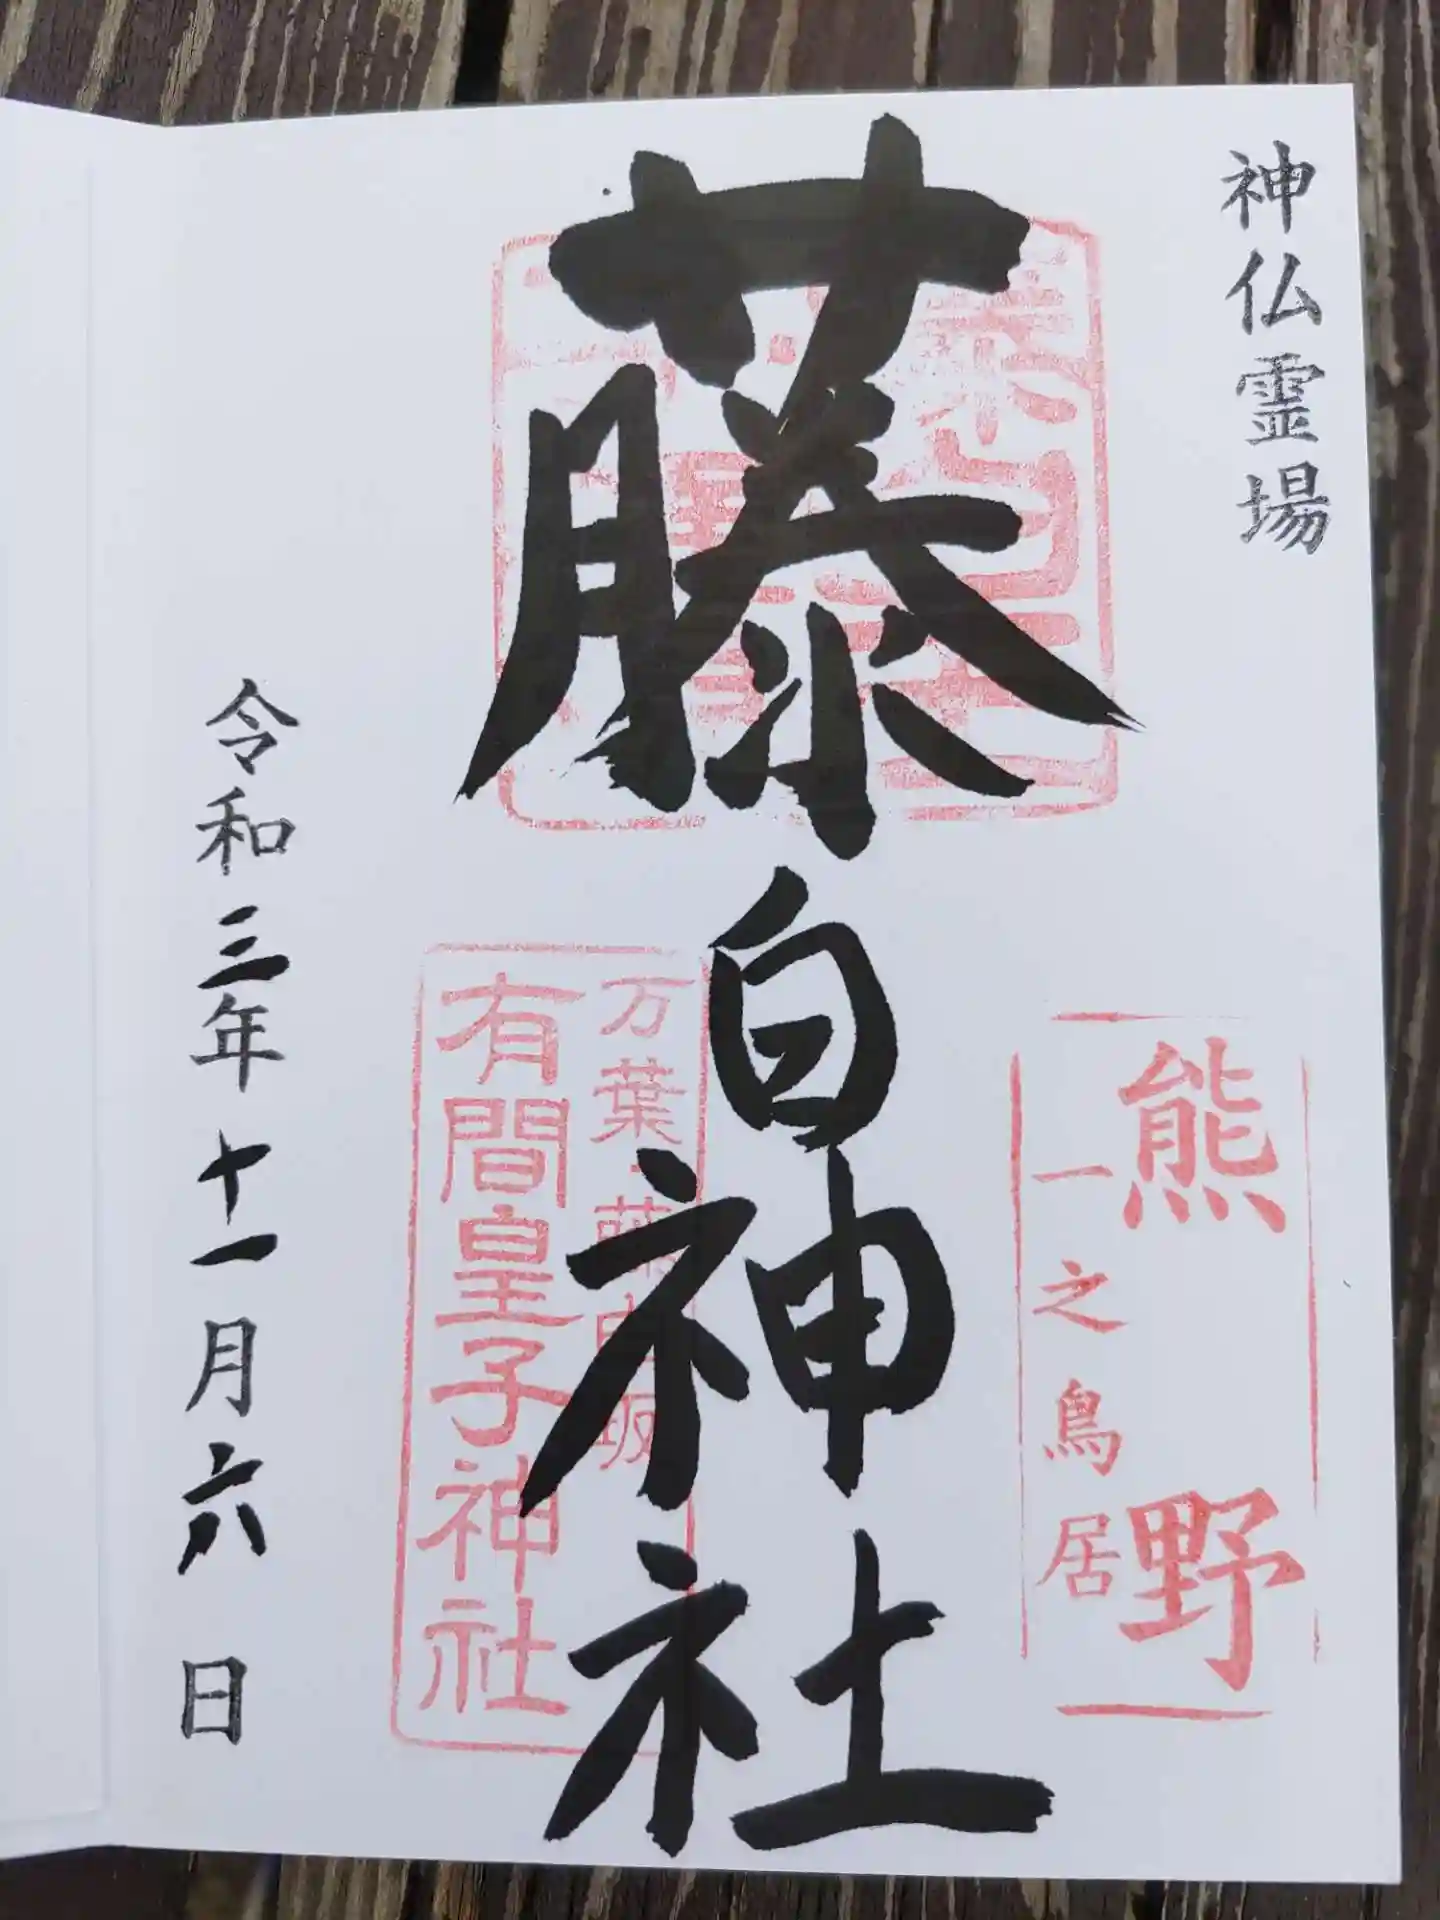 神仏霊場
熊野
一之鳥居
藤白神社
万葉・藤白坂
有間皇子神社
令和三年十一月六日